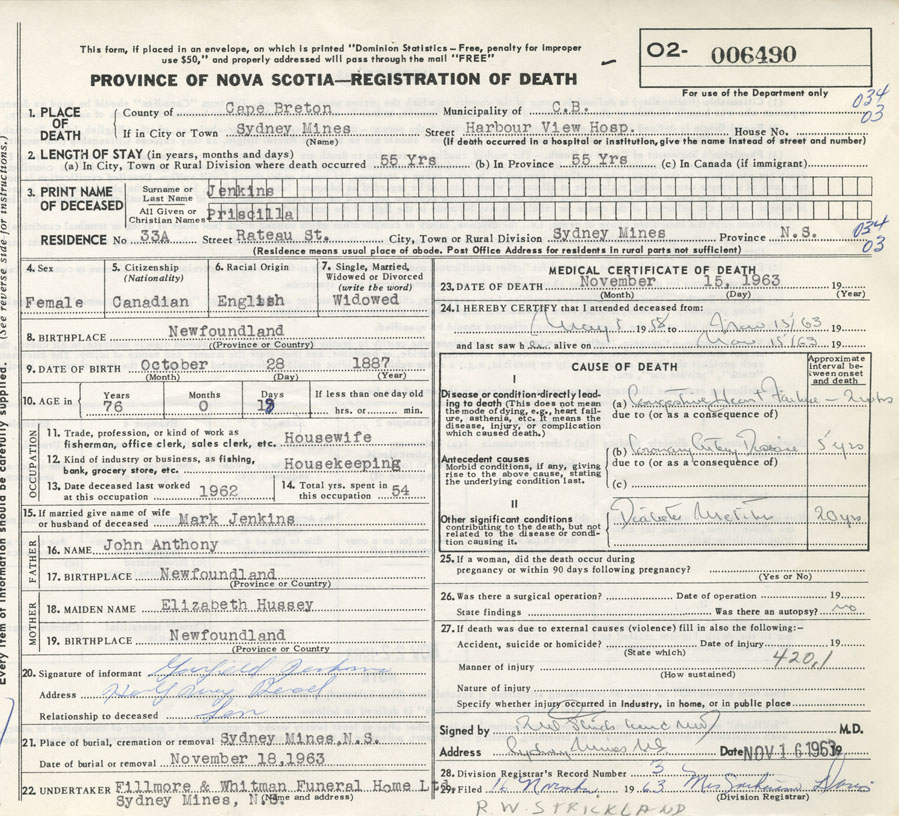 This form, if placed in an envelope, on which is printed "Dominion Statistics – Free, penalty for improper
use $50," and properly addressed will pass through the mail "FREE"
PROVINCE OF NOVA SCOTIA—REGISTRATION OF DEATH
O2- 006490
For use of the Department only
034
03
1. PLACE OF DEATH
County of Cape Breton Municipality of C.B.
If in City or Town Sydney Mines Street Harbour View Hosp. House No.
(Name) (If death occurred in a hospital or institution, give the name instead of street and number)
2. LENGTH OF STAY (in years, months and days)
(a) In City, Town or Rural Division where death occurred 55 Yrs (b) In Province 55 Yrs (c) In Canada (if immigrant)
3. PRINT NAME OF DECEASED
Surname or Last Name Jenkins
All Given or Christian Names Priscilla
RESIDENCE No 33A Street Rateau St. City, Town or Rural Division Sydney Mines Province N.S.
034
03
(Residence means usual place of abode. Post Office Address for residents in rural parts not sufficient)
4. Sex Female
5. Citizenship (Nationality) Canadian
6. Racial Origin English
7. Single, Married, Widowed or Divorced (write the word) Widowed
8. BIRTHPLACE Newfoundland
(Province or Country)
9. DATE OF BIRTH October 28 1887
(Month) (Day) (Year)
10. AGE in Years 76 Months 0 Days If less than one day old hrs. or min.
OCCUPATION
11. Trade, profession or kind of work as fisherman, office clerk, sales clerk, etc. Housewife
12. Kind of industry or business, as fishing, bank, grocery store, etc. Housekeeping
13. Date deceased last worked at this occupation 1962
14. Total yrs. spent in this occupation 54
15. If married give name of wife or husband of deceased Mark Jenkins
FATHER
16. NAME John Anthony
17. BIRTHPLACE Newfoundland
(Province or Country)
MOTHER
18. MAIDEN NAME Elizabeth Hussey
19. BIRTHPLACE Newfoundland
(Province or Country)
20. Signature of informant Garfield Jenkins
Address
Relationship to deceased Son
21. Place of burial, cremation or removal Sydney Mines, N.S.
Date of burial or removal November 18, 1963
22. UNDERTAKER Fillmore & Whitman Funeral Home Ltd.
Sydney Mines, N.S.
(Name and address)
MEDICAL CERTIFICATE OF DEATH
23. DATE OF DEATH November 15, 1963 19
(Month) (Day) (Year)
24. I HEREBY CERTIFY that I attended deceased from:
May 1958 to Nov 15/63 19
and last saw her alive on Nov 15/63 19
CAUSE OF DEATH
Approximate interval between onset and death
I
Disease or condition directly leading to death (This does not mean the mode of dying, e.g., heart failure, asthenia, etc. It means the disease, injury, or complication which caused death.)
(a) Congestive Heart Failure —
due to (or as a consequence of)
Antecedent causes
Morbid conditions, if any, giving rise to the above cause, stating the underlying condition last.
(b) Coronary Artery Disease 5 yrs
due to (or as a consequence of)
(c)
II
Other significant conditions contributing to the death, but not related to the disease or condition causing it.
Diabetes Mellitus 20 yrs
25. If a woman, did the death occur during pregnancy or within 90 days following pregnancy?
(Yes or No)
26. Was there a surgical operation? Date of operation 19
State findings Was there an autopsy? no
27. If death was due to external causes (violence) fill in also the following:–
Accident, suicide or homicide? Date of injury 19
(State which)
420.1
Manner of injury
(How sustained)
Nature of injury
Specify whether injury occurred in Industry, in home, or in public place
Signed by M.D.
Address Sydney Mines NS Date NOV 16 1963 19
28. Division Registrar's Record Number 3
29. Filed 16 November 1963 Mrs
(Division Registrar)
R.W. STRICKLAND
Every item of information should be carefully supplied. (See reverse side for instructions.)